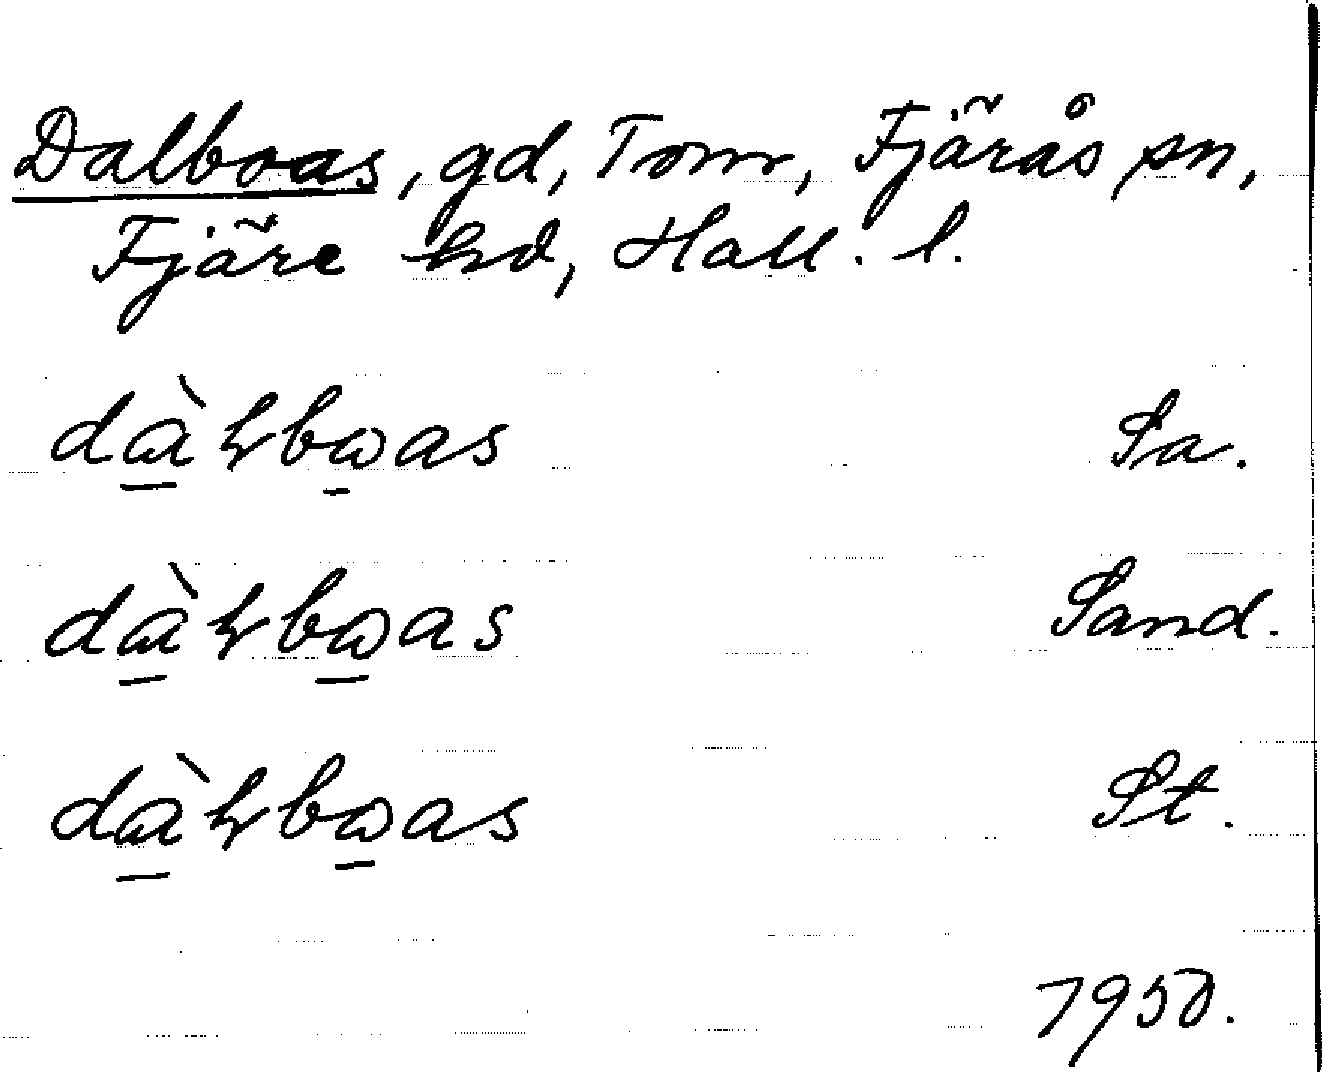 Dalboas, gd, Tom, Fjärås sn,
Fjäre hd, Hall. l.
dàɽbωas Sa.
dàɽbωas Sand.
dàɽbωas St.
1950.